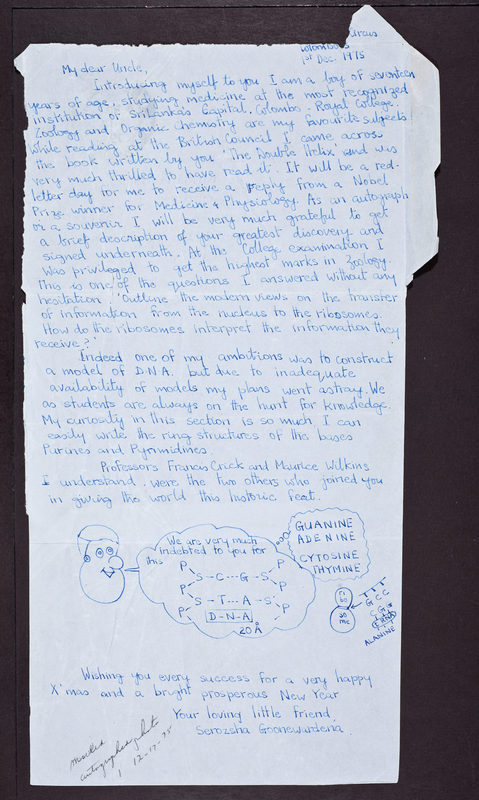 Circus
Colombo 5
1st Dec. 1975
My dear Uncle,
Introducing myself to you I am a boy of seventeen
years of age, studying medicine at the most recognized
institution of SriLanka's Capital, Colombo - Royal College.
Zoology and Organic Chemistry are my favourite subjects
While reading at the British Council I came across
the book written by you 'The Double Helix' and was
very much thrilled to have read it. It will be a red-
letter day for me to receive a reply from a Nobel
Prize winner for Medicine & Physiology. As an autograph
or a souvenir I will be very much grateful to get
a brief description of your greatest discovery and
signed underneath. At the College examination I
was privileged to get the highest marks in Zoology.
This is one of the questions I answered without any
hesitation. 'Outline the modern views on the transfer
of information from the nucleus to the ribosomes.
How do the ribosomes interpret the information they
receive?'
Indeed one of my ambitions was to construct
a model of D.N.A. but due to inadequate
availability of models my plans went astray. We
as students are always on the hunt for knowledge.
My curiosity in this section is so much, I can
easily write the ring structures of the bases
Purines and Pyrimidines.
Professors Francis Crick and Maurice Wilkins
I understand were the two others who joined you
in giving the world this historic feat.
We are very much
indebted to you for
this
P P
S - C --- G - S
P P
S - T --- A - S
P P
D - N - A
20 Å
GUANINE
ADENINE
CYTOSINE
THYMINE
RI
BO
SO
ME
G C C
C G
ALANINE
Wishing you every success for a very happy
X'mas and a bright prosperous New Year
Your loving little friend,
Serozsha Goonewardena
mailed
autographed photo
12-17-75